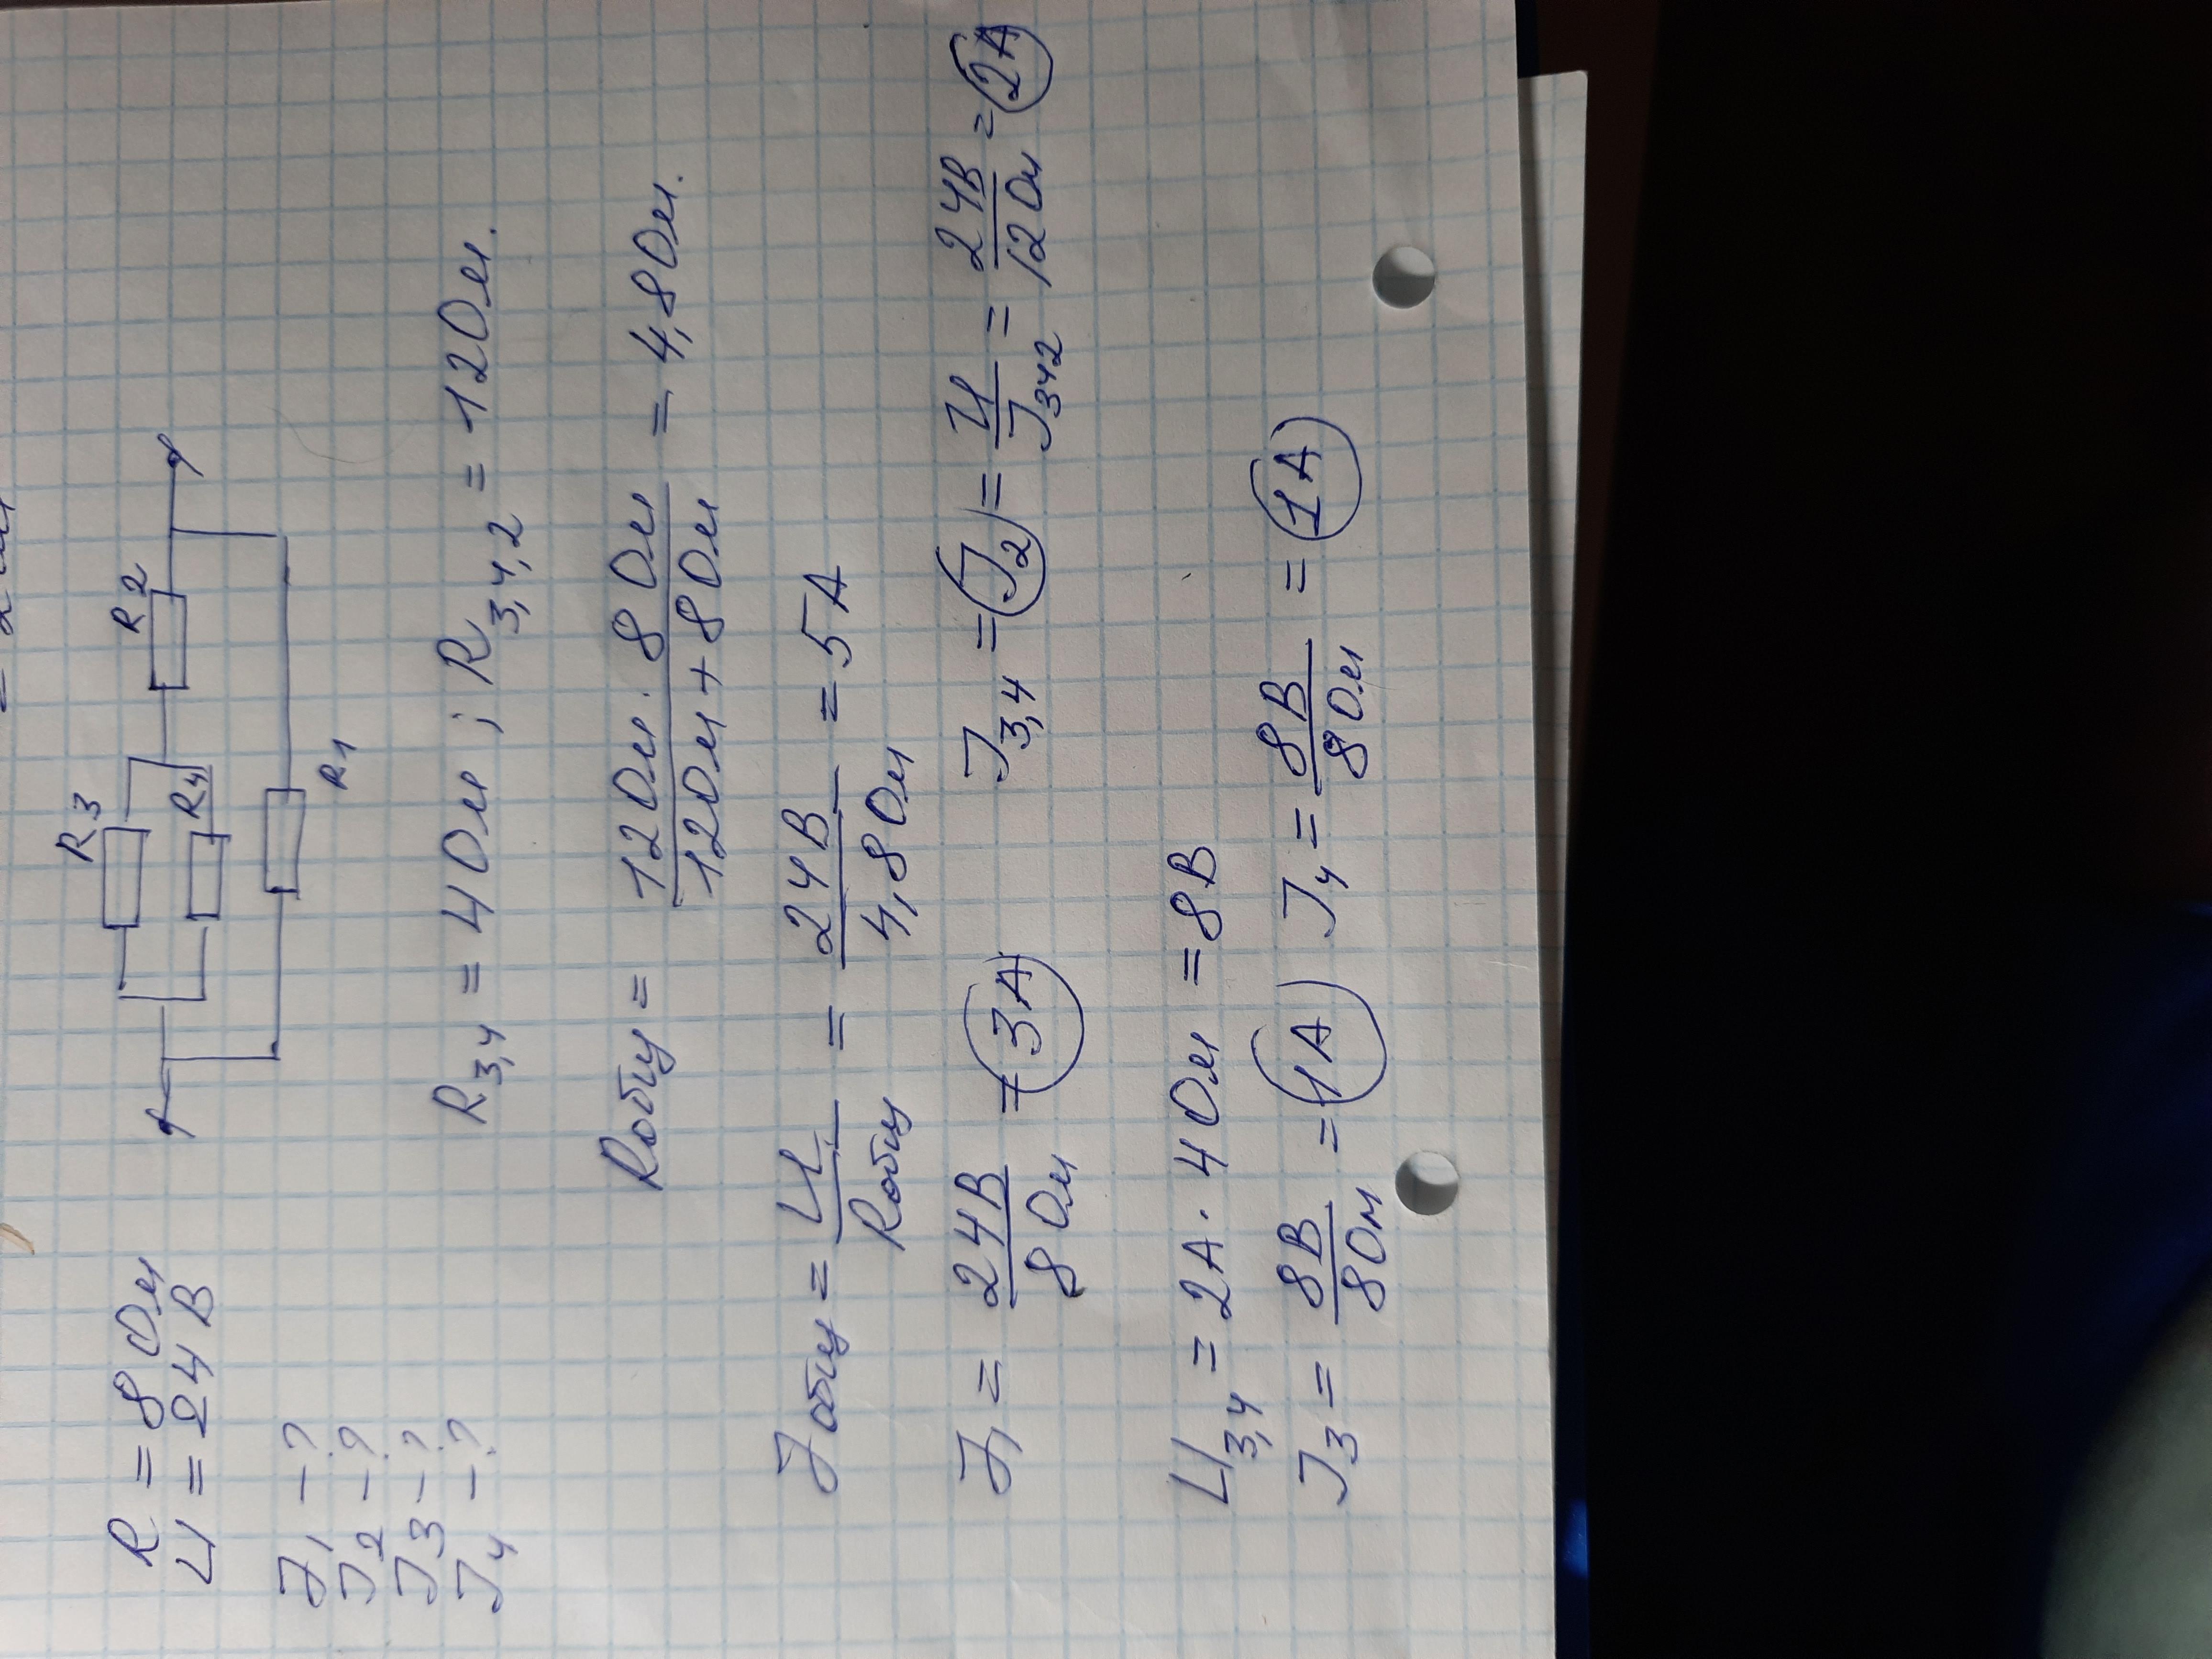 R = 8 Ом
U = 24 В
J1 – ?
J2 – ?
J3 – ?
J4 – ?
R3
R4
R2
R1
R3,4 = 4 Ом ; R3,4,2 = 12 Ом.
Rобщ = 12 Ом · 8 Ом / 12 Ом + 8 Ом = 4,8 Ом.
Jобщ = U / Rобщ = 24 В / 4,8 Ом = 5 А
J1 = 24 В / 8 Ом = 3 А J3,4 = J2 = U / J342 = 24 В / 12 Ом = 2 А
U3,4 = 2 А · 4 Ом = 8 В
J3 = 8 В / 8 Ом = 1 А J4 = 8 В / 8 Ом = 1 А